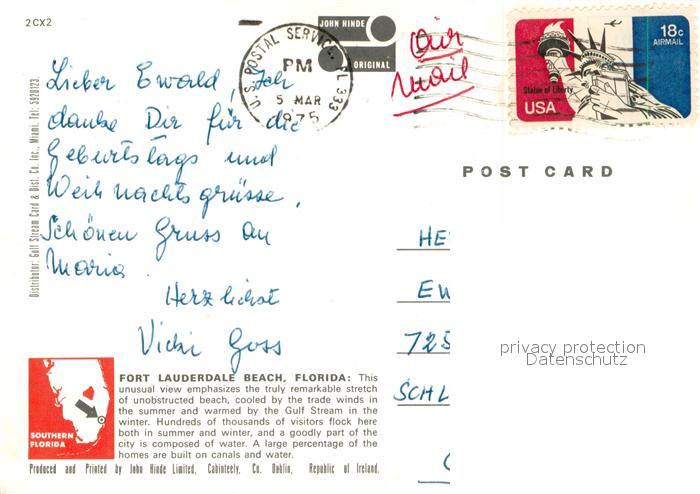 2CX2
JOHN HINDE
ORIGINAL
U.S. POSTAL SERVICE, FL 333
PM
5 MAR
1975
Air
Mail
18c
AIRMAIL
Statue of Liberty
USA
POST CARD
Lieber Ewald, Ich
danke Dir für die
Geburtstags und
Weihnachtsgrüsse,
Schönen Gruss an
Maria.
Herzlichst
Vicki Goss
HE
EW
725
SCHL
privacy protection
Datenschutz
Distributor: Gulf Stream Card & Dist. Co. Inc., Miami. Tel: 5920123.
SOUTHERN
FLORIDA
FORT LAUDERDALE BEACH, FLORIDA: This
unusual view emphasizes the truly remarkable stretch
of unobstructed beach, cooled by the trade winds in
the summer and warmed by the Gulf Stream in the
winter. Hundreds of thousands of visitors flock here
both in summer and winter, and a goodly part of the
city is composed of water. A large percentage of the
homes are built on canals and water.
Produced and Printed by John Hinde Limited, Cabinteely, Co. Dublin, Republic of Ireland.